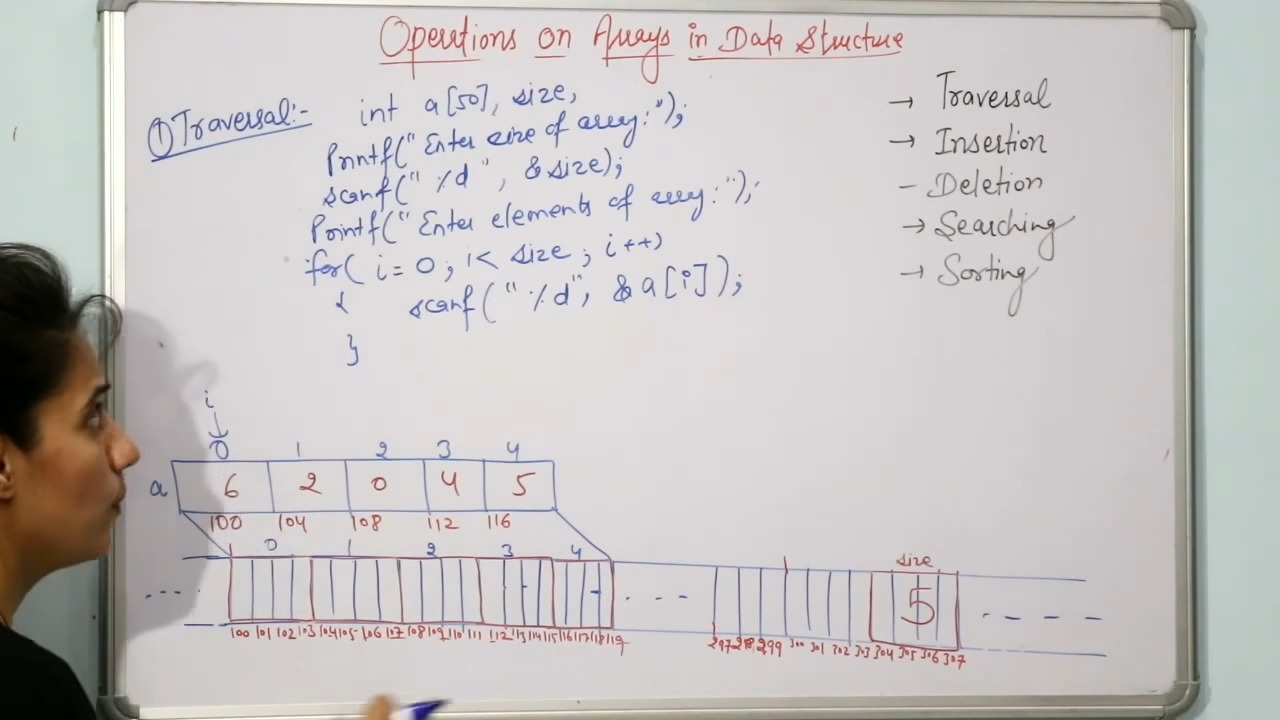 Operations on Arrays in Data Structure
① Traversal:-
int a[50], size,
Printf("Enter size of array:");
scanf("%d", &size);
Printf("Enter elements of array:");
for( i=0; i< size; i++)
{ scanf("%d", &a[i]);
}
→ Traversal
→ Insertion
- Deletion
→ Searching
→ Sorting
i
0 1 2 3 4
a 6 2 0 4 5
100 104 108 112 116
0 1 2 3 4
size
5
100 101 102 103 104 105 106 107 108 109 110 111 112 113 114 115 116 117 118 119
297 298 299 300 301 302 303 304 305 306 307